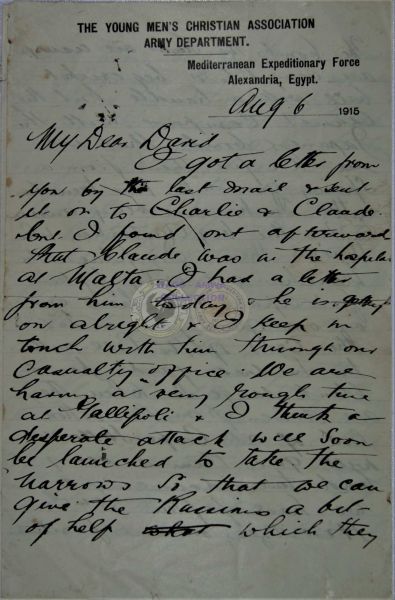 THE YOUNG MEN'S CHRISTIAN ASSOCIATION
ARMY DEPARTMENT.
Mediterranean Expeditionary Force
Alexandria, Egypt.
Aug 6 1915
My Dear David
I got a letter from
you by the last mail & sent
it on to Charlie & Claude.
but I found out afterward
that Claude was in the hospital
at Malta I had a letter
from him today & he is getting
on alright & I keep in
touch with him through our
Casualty office. We are
having a very rough time
at Gallipoli & I think a
desperate attack will soon
be launched to take the
narrows so that we can
give the Russians a bit
of help which they